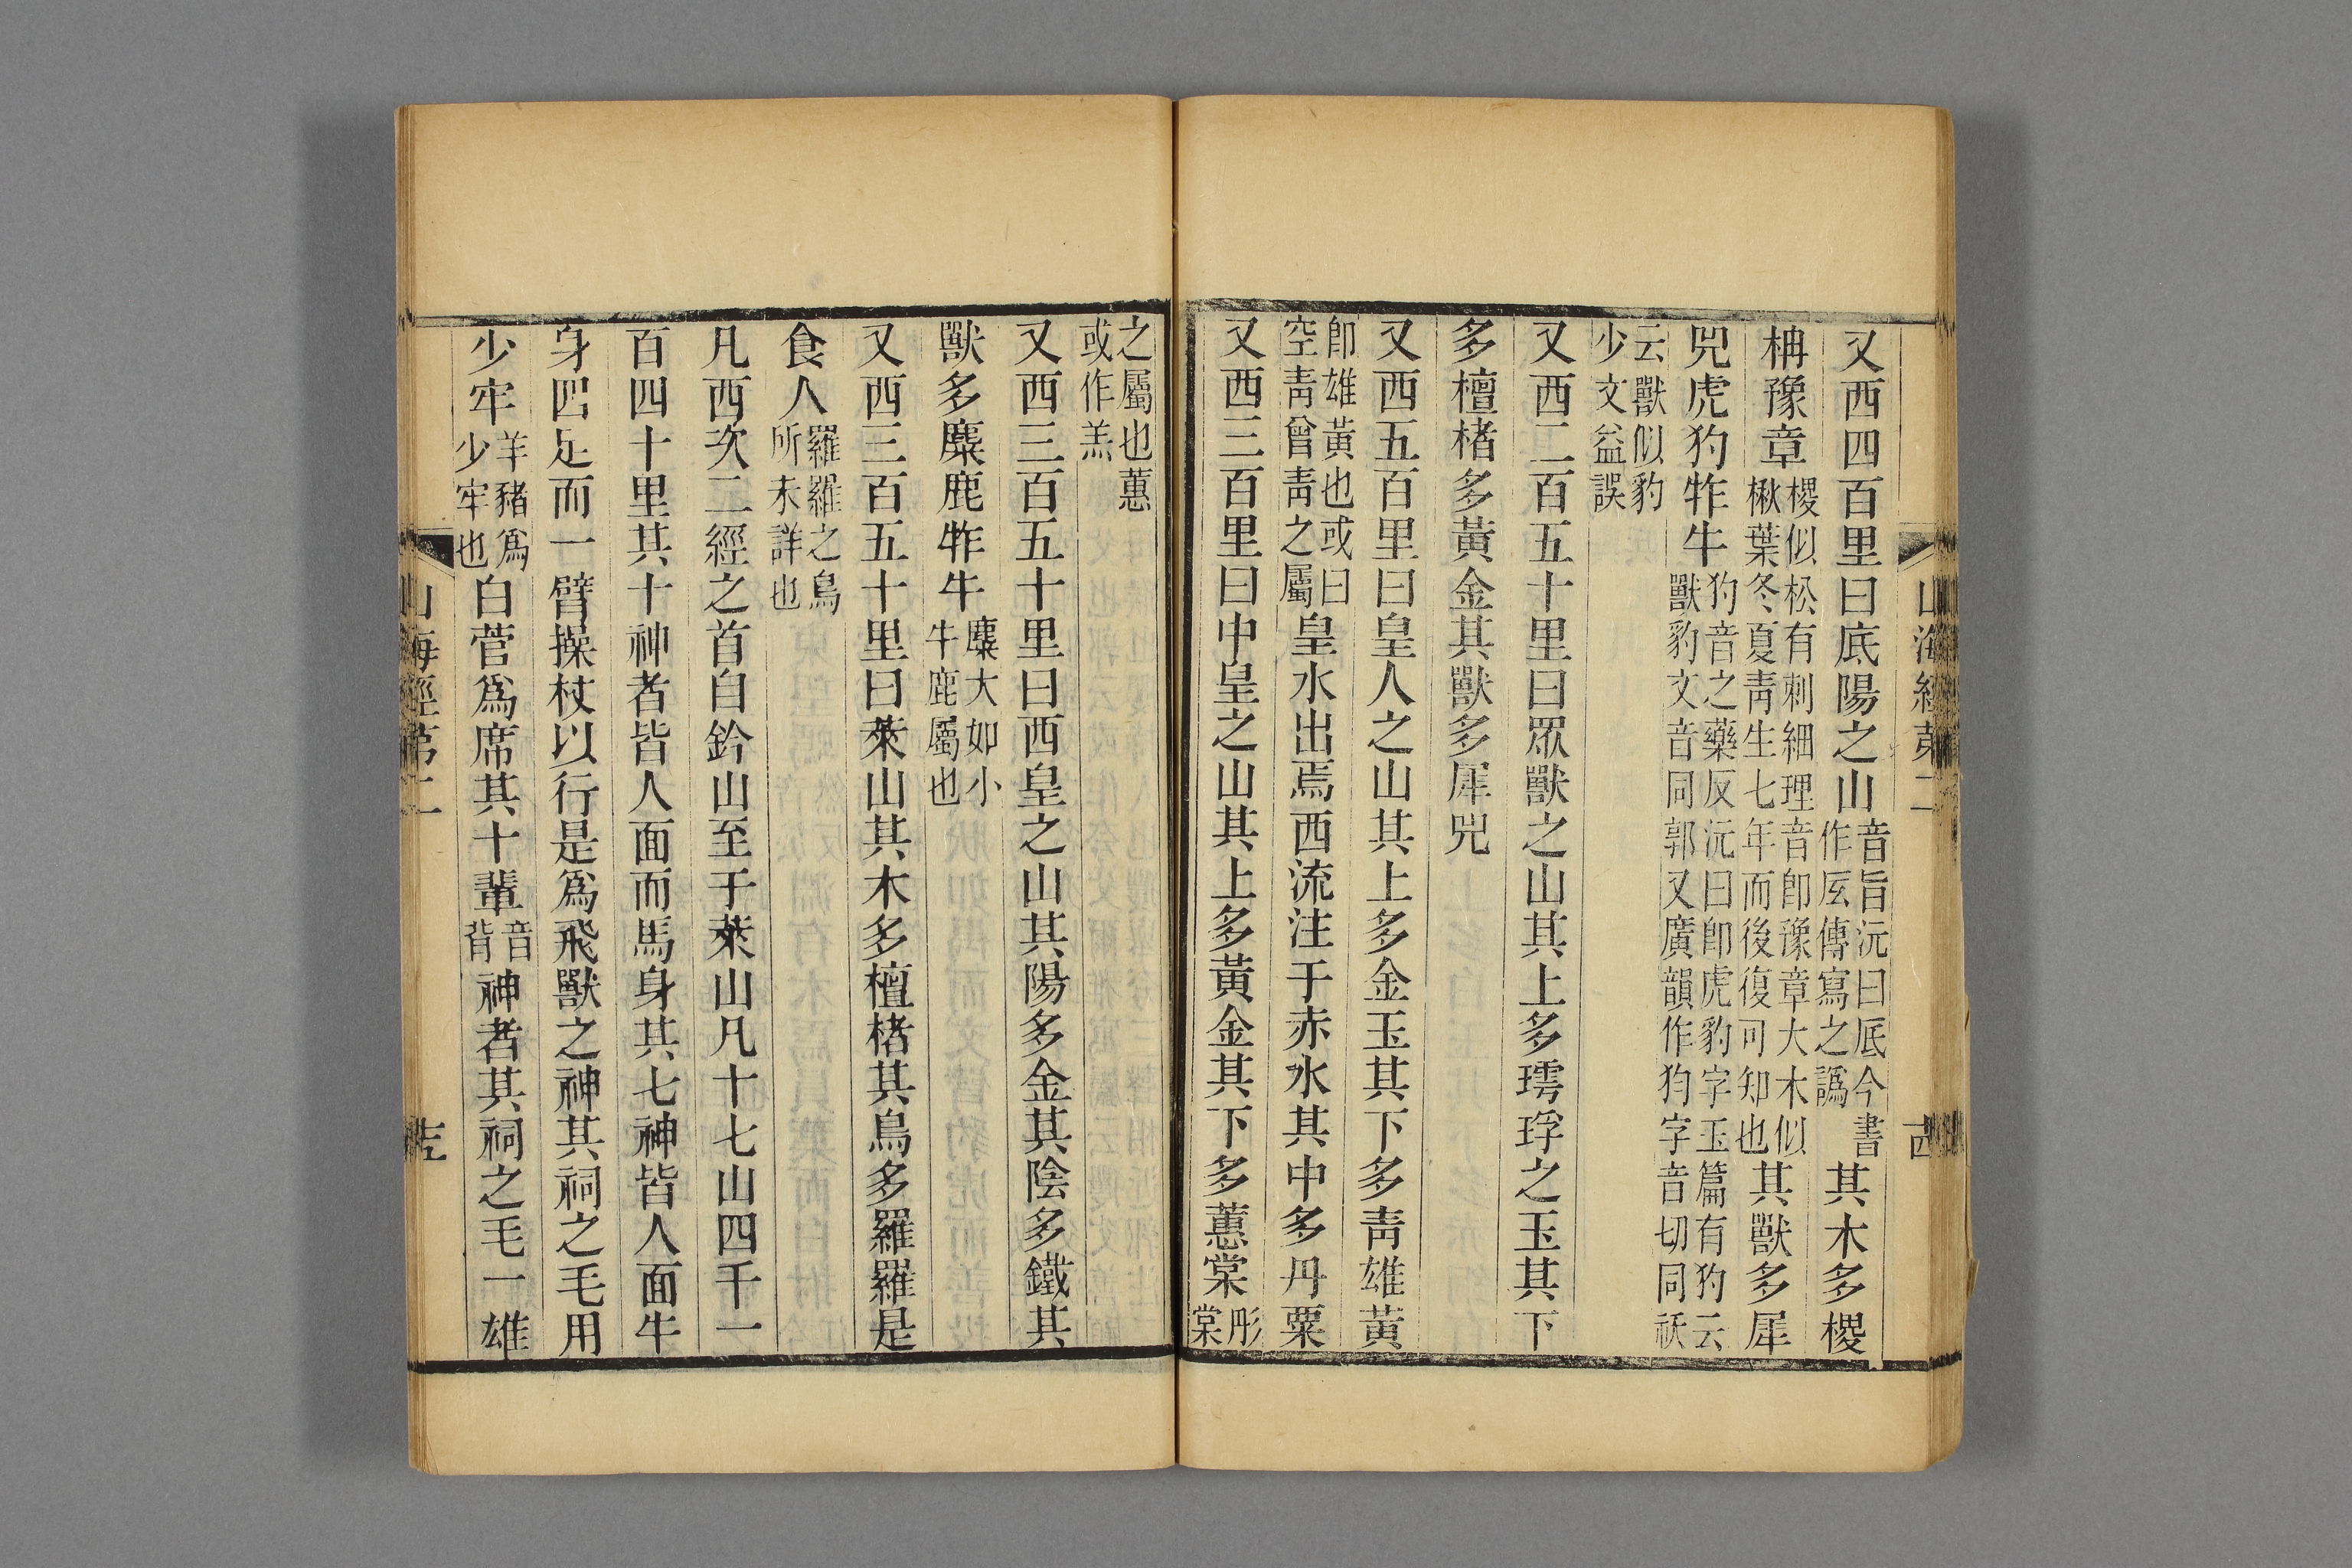 又西四百里曰底陽之山音旨沅曰底今書作厎傳寫之譌其木多㮨
枏豫章㮨似松有刺細理音即豫章大木似楸葉冬夏靑生七年而後復可知也其獸多犀
兕虎犳㸲牛犳音之藥反沅曰即虎豹字玉篇有犳云獸豹文音同郭又廣韻作犳字音切同祅
云獸似豹少文益誤
又西二百五十里曰眾獸之山其上多㻬琈之玉其下
多檀楮多黃金其獸多犀兕
又西五百里曰皇人之山其上多金玉其下多靑雄黃
即雄黃也或曰空靑曾靑之屬皇水出焉西流注于赤水其中多丹粟
又西三百里曰中皇之山其上多黃金其下多蕙棠彤棠
之屬也蕙或作羔
又西三百五十里曰西皇之山其陽多金其陰多鐵其
獸多麋鹿㸲牛麋大如小牛鹿屬也
又西三百五十里曰萊山其木多檀楮其鳥多羅羅是
食人羅羅之鳥所未詳也
凡西次二經之首自鈐山至于萊山凡十七山四千一
百四十里其十神者皆人面而馬身其七神皆人面牛
身四足而一臂操杖以行是爲飛獸之神其祠之毛用
少牢羊豬爲少牢也白菅爲席其十輩音背神者其祠之毛一雄
山海經第二